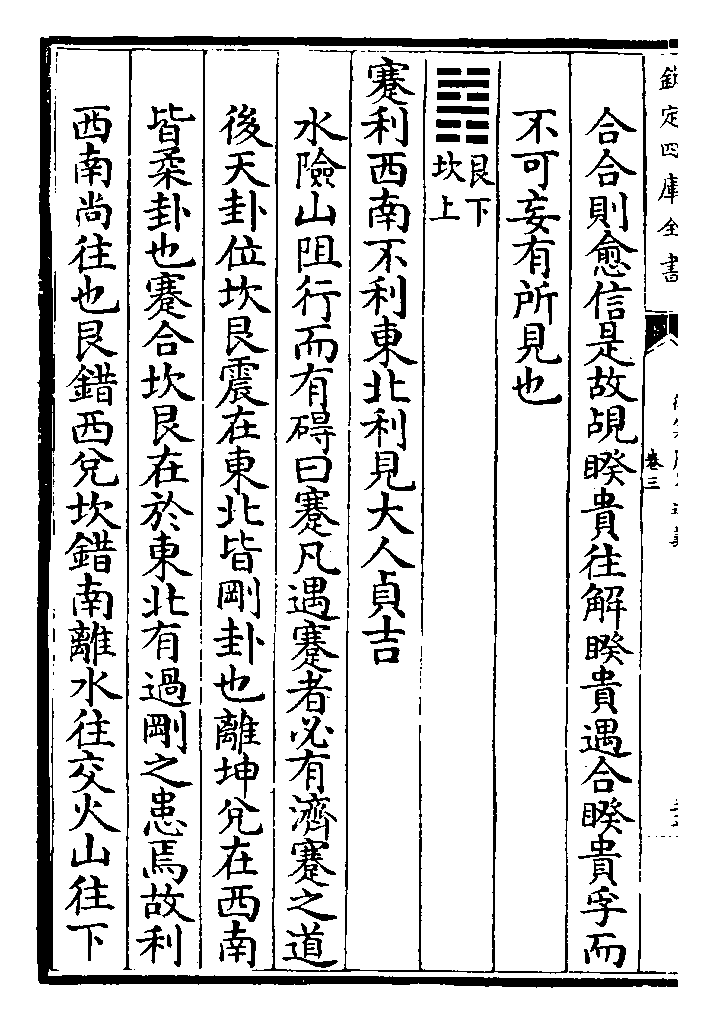 欽定四庫全書
卷三
合合則愈信是故覘睽貴往解睽貴遇合睽貴孚而
不可妄有所見也
艮下
坎上
蹇利西南不利東北利見大人貞吉
水險山阻行而有碍曰蹇凡遇蹇者必有濟蹇之道
後天卦位坎艮震在東北皆剛卦也離坤兌在西南
皆柔卦也蹇合坎艮在於東北有過剛之患焉故利
西南尚往也艮錯西兌坎錯南離水往交火山往下